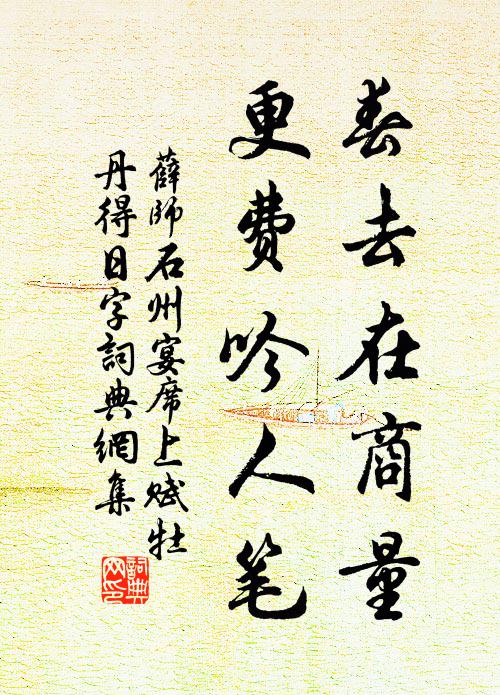 春去在商量
更费吟人笔
薛師石州宴席上赋牡
丹得日字詞典網集
詞典
网印